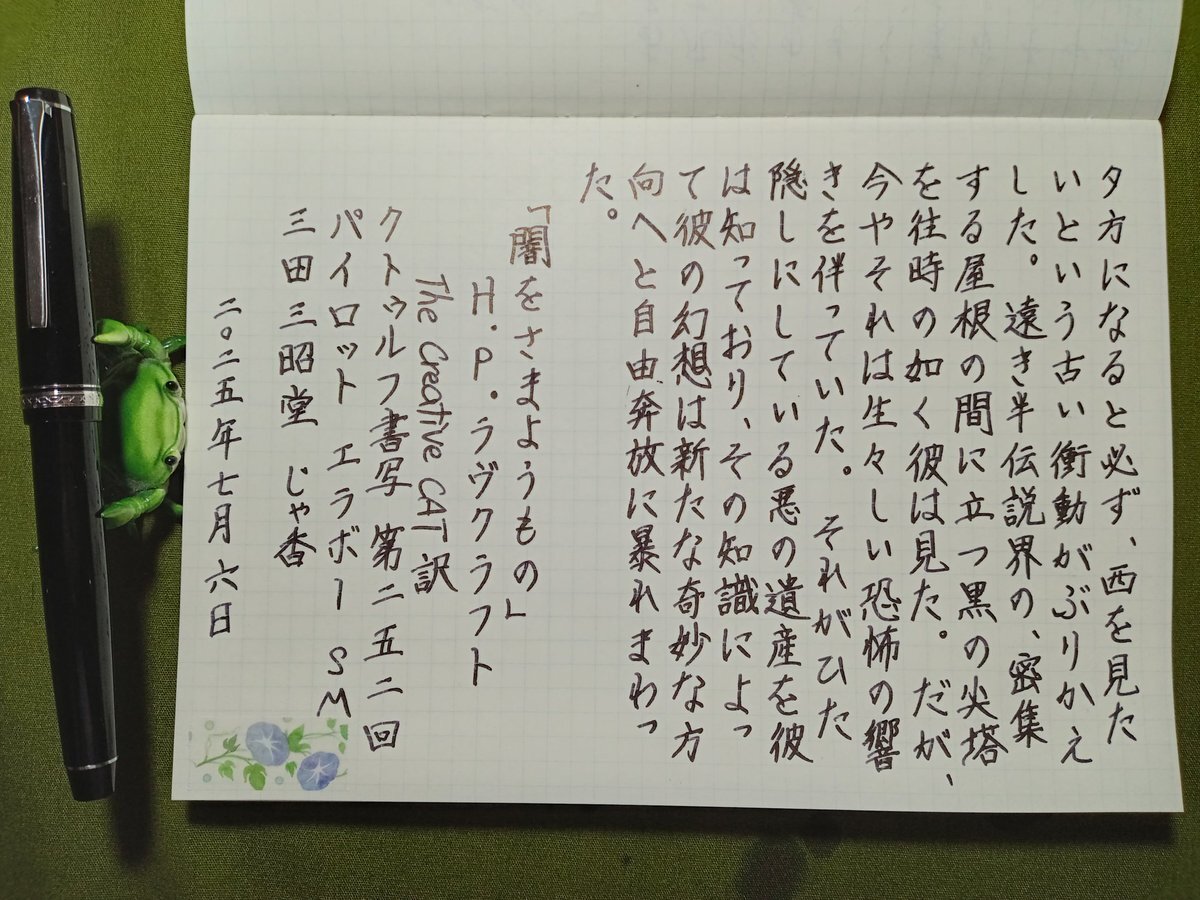 夕方になると必ず、西を見た
いという古い衝動がぶりかえ
した。遠き半伝説界の、密集
する屋根の間に立つ黒の尖塔
を往時の如く彼は見た。だが、
今やそれは生々しい恐怖の響
きを伴っていた。それがひた
隠しにしている悪の遺産を彼
は知っており、その知識によっ
て彼の幻想は新たな奇妙な方
向へと自由奔放に暴れまわっ
た。
「闇をさまようもの」
H.P.ラヴクラフト
The Creative CAT 訳
クトゥルフ書写 第二五二回
パイロット エラボー SM
三田三昭堂 じゃ香
二〇二五年七月六日